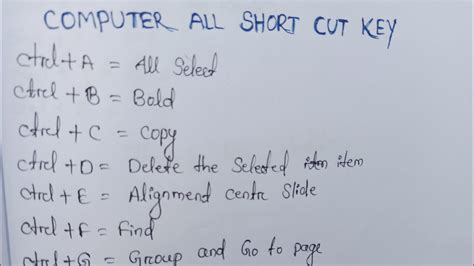 COMPUTER ALL SHORT CUT KEY
ctrl + A = All Select
ctrl + B = Bold
ctrl + C = Copy
ctrl + D = Delete the Selected item item
ctrl + E = Alignmend centr Slide
ctrl + F = Find
ctrl + G = Group and Go to page